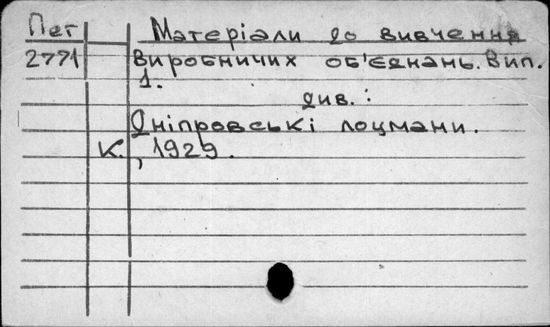 Пет Матеріали до вивчення
2771 виробничих об'єднань. Вип.
1.
див.:
Дніпровські лоцмани.
К., 1929.